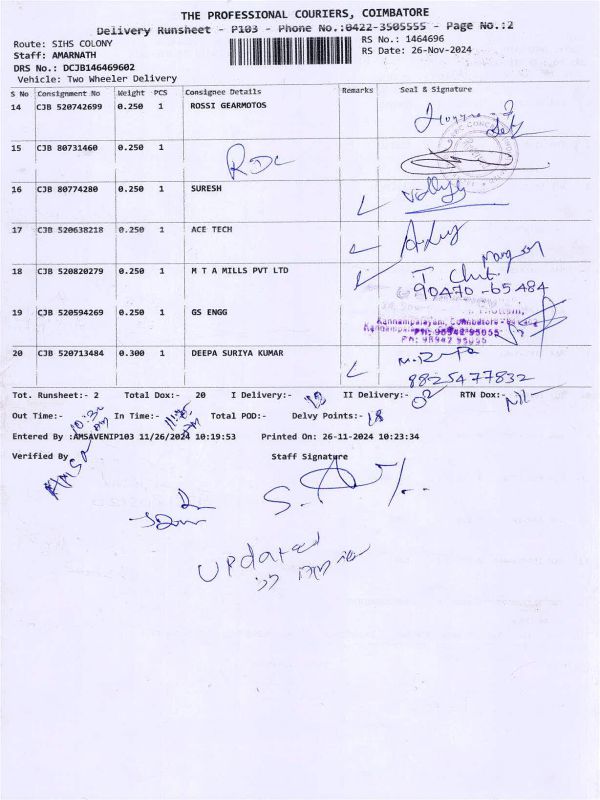 THE PROFESSIONAL COURIERS, COIMBATORE
Delivery Runsheet - P103 - Phone No.:0422-3505555 - Page No.:2
Route: SIHS COLONY
RS No.: 1464696
Staff: AMARNATH
RS Date: 26-Nov-2024
DRS No.: DCJB146469602
Vehicle: Two Wheeler Delivery
S No Consignment No Weight PCS Consignee Details Remarks Seal & Signature
14 CJB 520742699 0.250 1 ROSSI GEARMOTOS
15 CJB 80731460 0.250 1
RDC
16 CJB 80774280 0.250 1 SURESH
17 CJB 520638218 0.250 1 ACE TECH
18 CJB 520820279 0.250 1 M T A MILLS PVT LTD
90470-65484
19 CJB 594269 0.250 1 GS ENGG
20 CJB 520713484 0.300 1 DEEPA SURIYA KUMAR
8825477832
Tot. Runsheet:- 2 Total Dox:- 20 I Delivery:- II Delivery:- 02 RTN Dox:- Nil
Out Time:- 10:30 In Time:- Total POD:- Delvy Points:- 18
Entered By :AMSAVENIP103 11/26/2024 10:19:53 Printed On: 26-11-2024 10:23:34
Verified By Staff Signature
AMSA
Updated